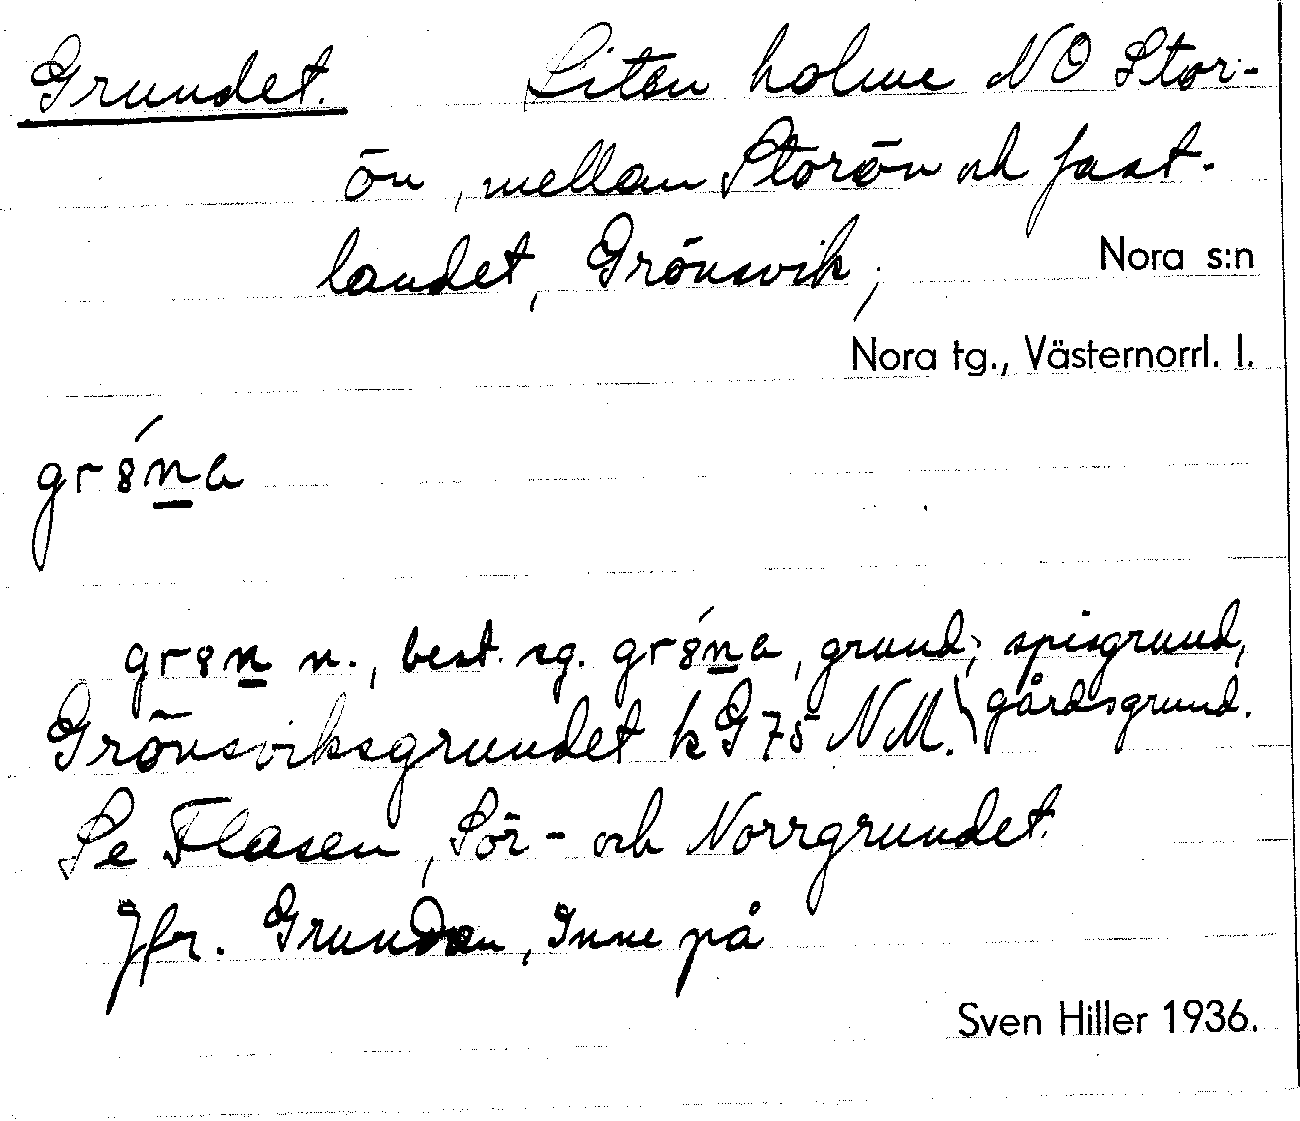 Grundet. Liten holme NO Stor-
ön, mellan Storön och fast-
landet, Grönsvik, Nora s:n
Nora tg., Västernorrl. l.
gr8́n̲a
gr8n̲ n., best. sg. gr8́n̲a, grund; spisgrund,
gårdsgrund.
Grönsviksgrundet kG75 NM.
Se Flasen, Sör- och Norrgrundet.
Jfr. Grundan, Inne på
Sven Hiller 1936.